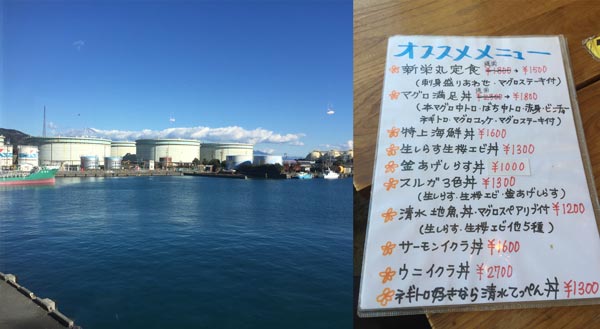 オススメメニュー
新栄丸定食 通常 ¥1500
(刺身盛りあわせ・マグロステーキ付)
マグロ満足丼 通常 ¥1800
(本マグロ中トロ・ばち中トロ・漬身・ビンチョー
ネギトロ・マグロユッケ・マグロステーキ付)
特上海鮮丼 ¥1600
生しらす生桜エビ丼 ¥1300
釜あげしらす丼 ¥1000
スルガ3色丼 ¥1300
(生しらす・生桜エビ・釜あげしらす)
清水地魚丼・マグロスペアリブ付 ¥1200
(生しらす・生桜エビ他5種)
サーモンイクラ丼 ¥1600
ウニイクラ丼 ¥2700
ネギトロ好きなら清水てっぺん丼 ¥1300